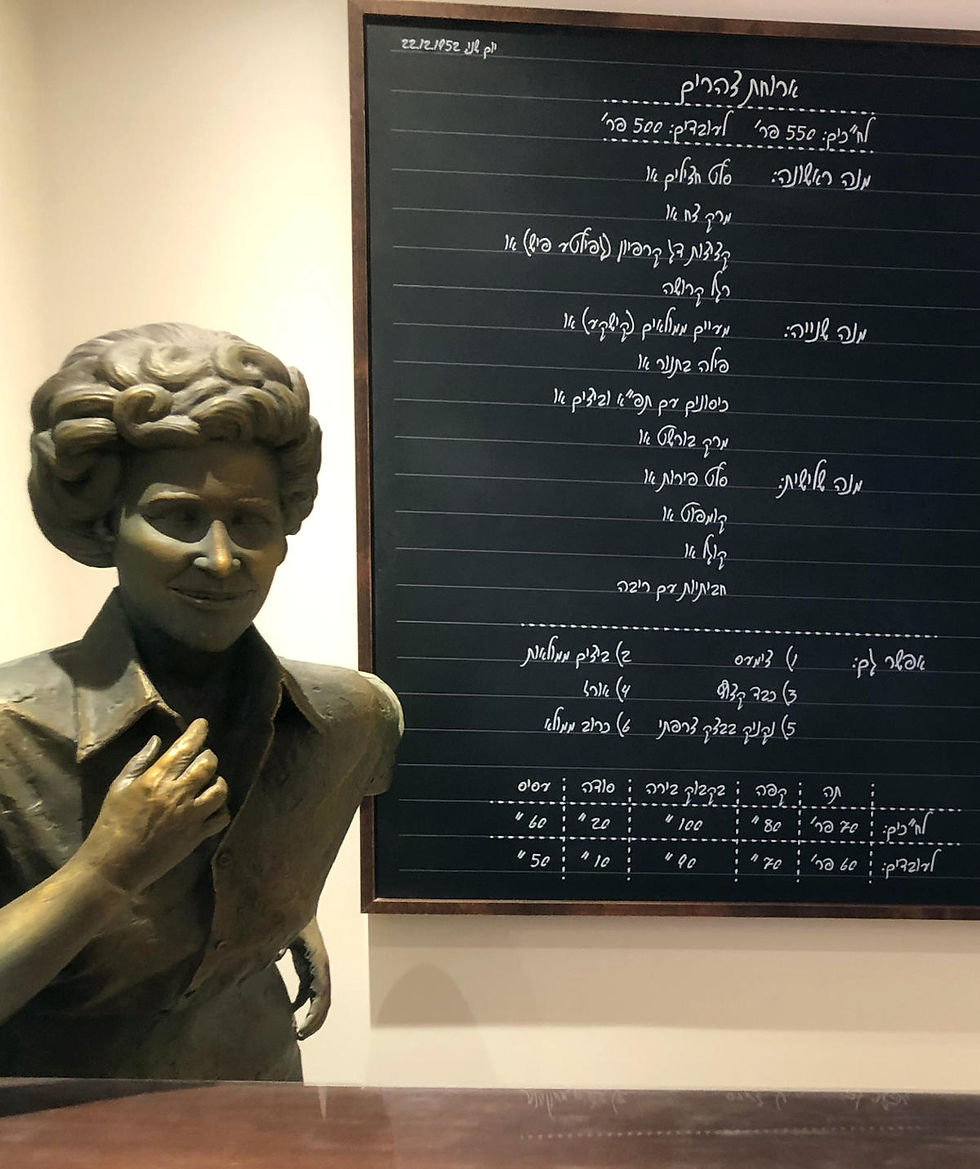 יום שני 22.12.1952
ארוחת צהרים
לח"כים: 550 פר' לעובדים: 500 פר'
מנה ראשונה: סלט חצילים או
מרק צח או
קציצות דג קרפיון (געפילטע פיש) או
רגל קרושה
מנה שנייה: מעיים ממולאים (קישקע) או
פילה בתנור או
כיסונים עם תפ"א וביצים או
מרק בורשט או
מנה שלישית: סלט פירות או
קומפוט או
קוגל או
חביתיות עם ריבה
אפשר גם: 1) צימעס 2) ביצים ממולאות
3) כבד קצוץ 4) אורז
5) נקניק בבצק צרפתי 6) כרוב ממולא
תה קפה בקבוק בירה סודה עסיס
לח"כים: 70 פר' 80 " 100 " 20 " 60 "
לעובדים: 60 פר' 70 " 90 " 10 " 50 "